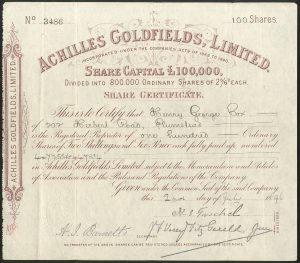 Nº 3486 100 Shares.
ACHILLES GOLDFIELDS, LIMITED.
INCORPORATED UNDER THE COMPANIES ACTS OF 1862 TO 1890.
SHARE CAPITAL £100,000,
DIVIDED INTO 800,000 ORDINARY SHARES OF 2/6 EACH.
SHARE CERTIFICATE.
This is to Certify that Henry George Cox
of Road, Plumstead
is the Registered Proprietor of one Hundred Ordinary
Shares of Two Shillings and Six Pence each fully paid up, numbered
in Achilles Goldfields Limited subject to the Memorandum and Articles
of Association and the Rules and Regulations of the Company.
GIVEN under the Common Seal of the said Company
this 2nd day of July 1896
SECRETARY
ACHILLES GOLDFIELDS, LIMITED.